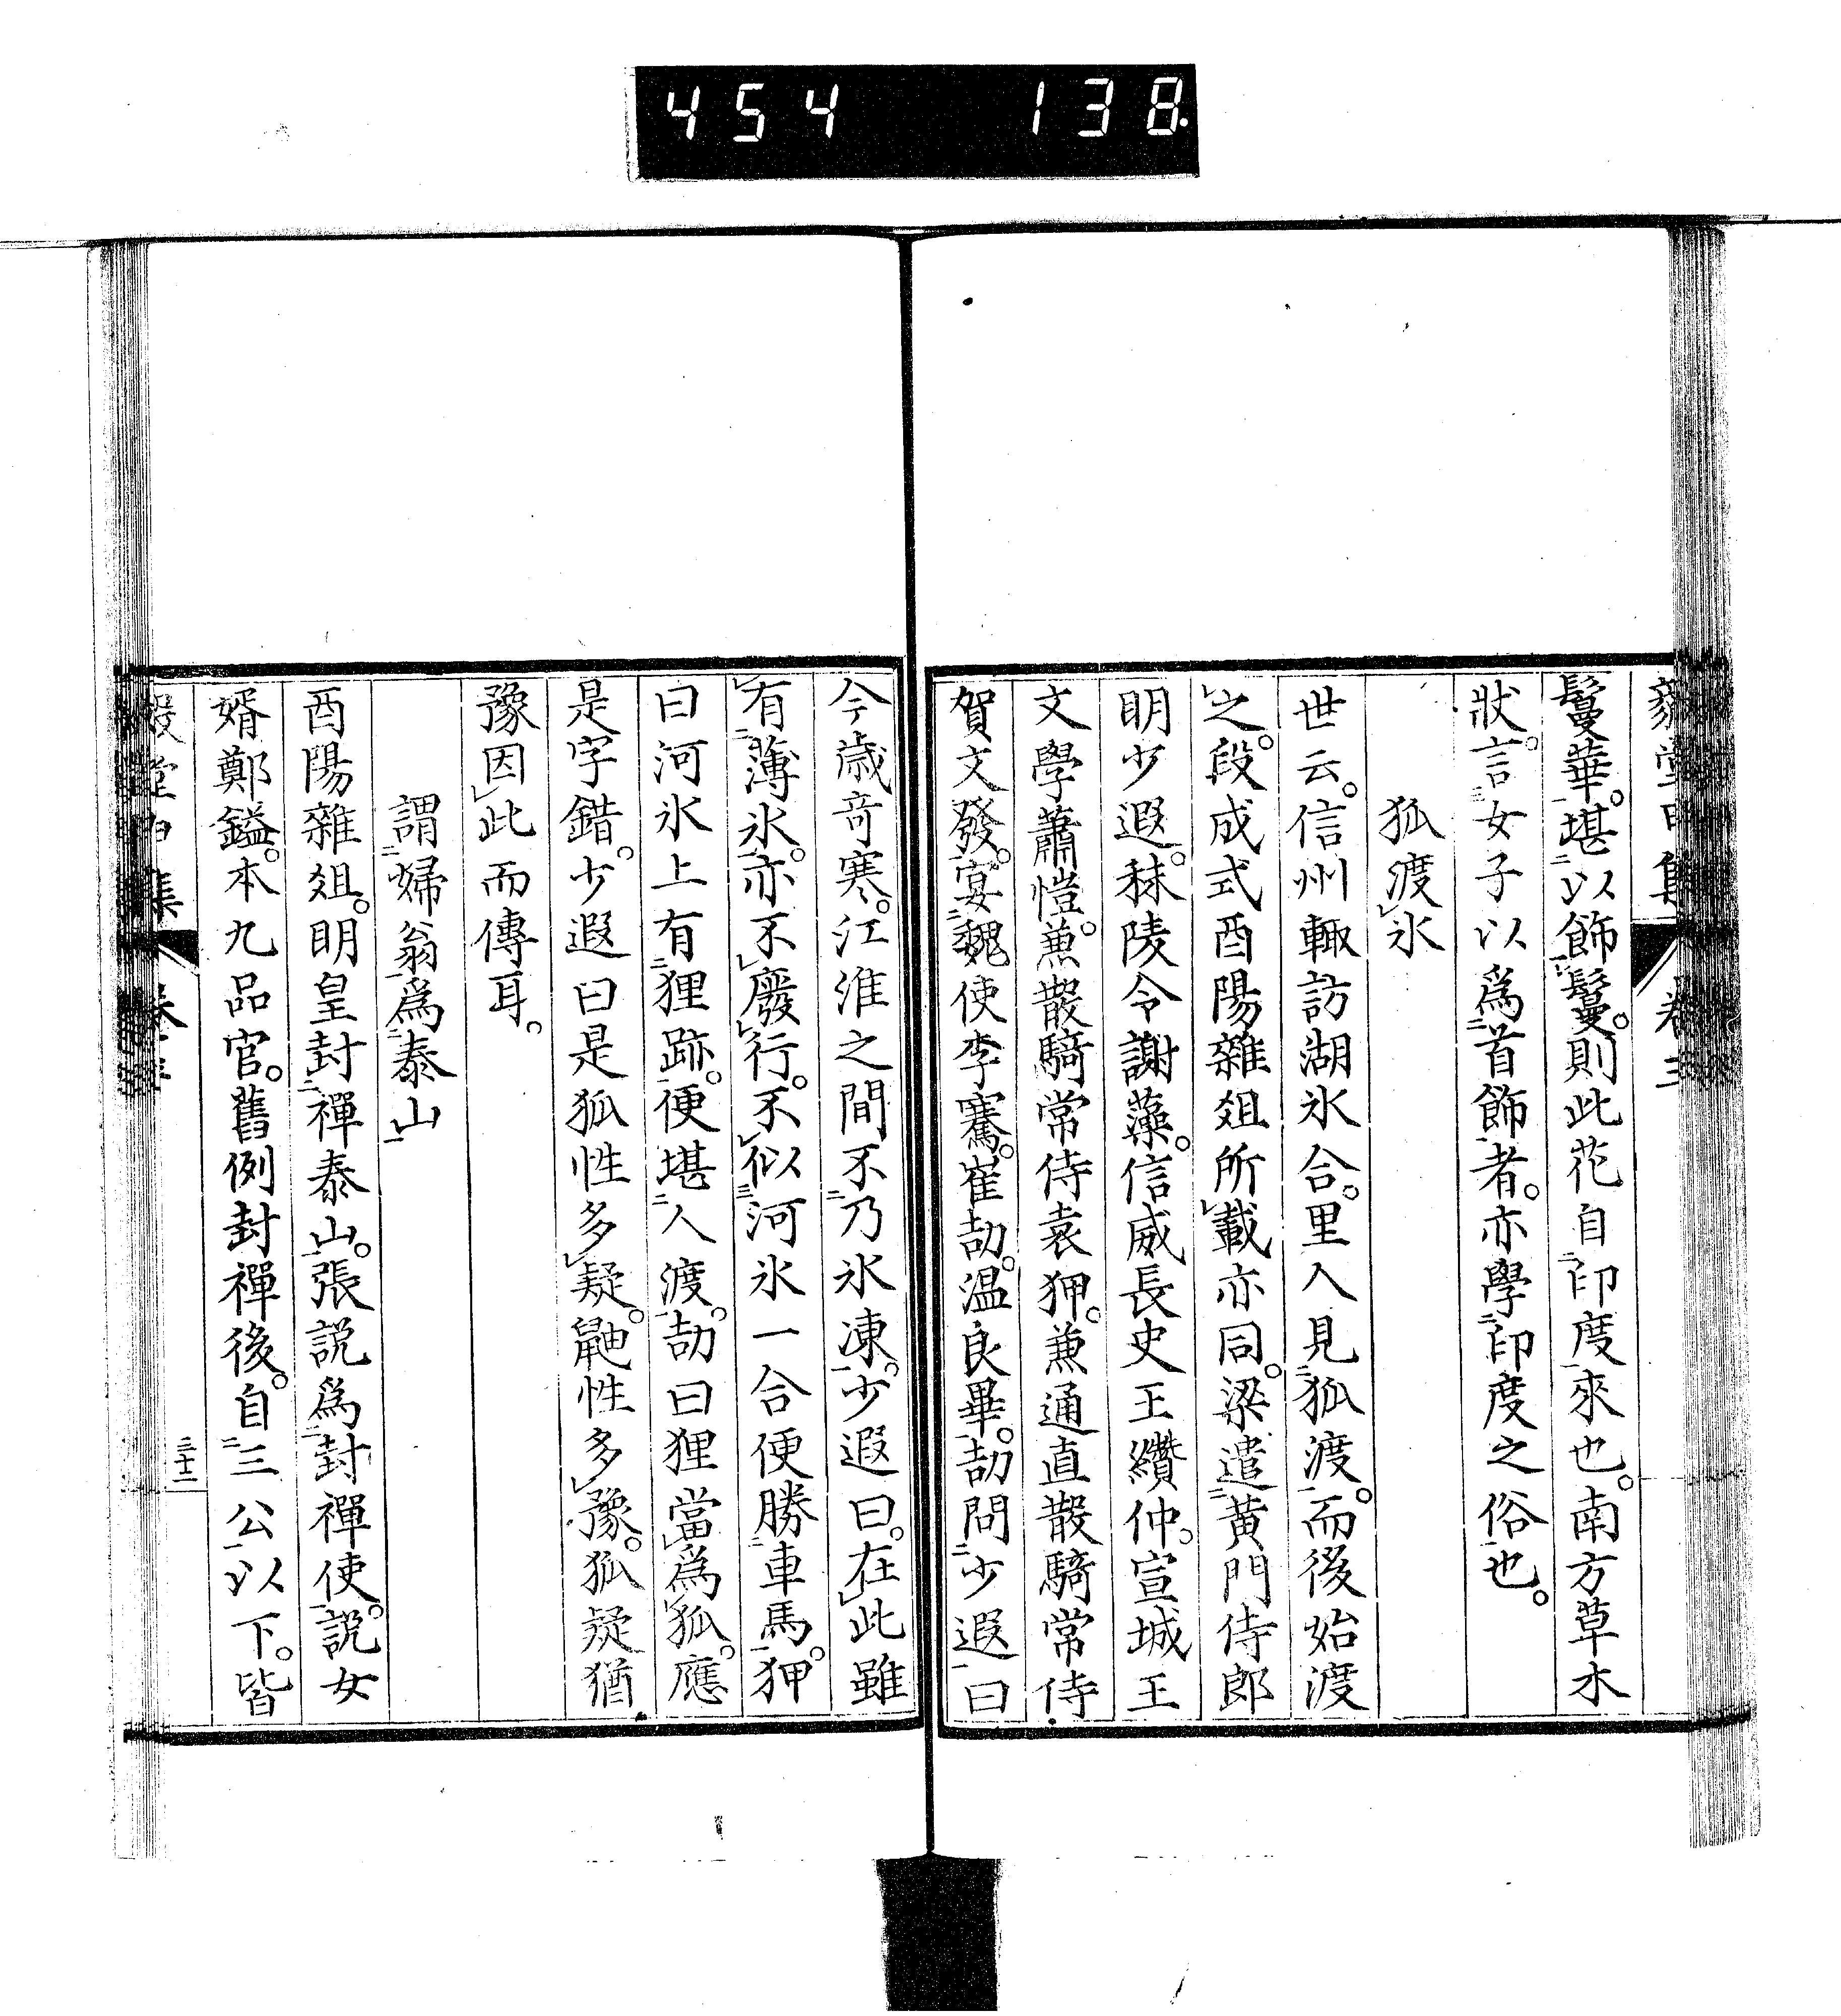 454 138
鬘華。堪以飾鬘。則此花自印度來也。南方草木
狀。言女子以爲首飾者。亦學印度之俗也。
狐渡氷
世云。信州輙訪湖氷合。里人見狐渡。而後始渡
之。段成式酉陽雜俎所載亦同。梁遣黄門侍郎
明少遐。秣陵令謝藻。信威長史王纘仲。宣城王
文學蕭愷。兼散騎常侍袁狎。兼通直散騎常侍
賀文發。宴魏使李騫。崔劼。温良畢。劼問少遐曰
今歳竒寒。江淮之間不乃氷凍。少遐曰。在此雖
有薄氷。亦不廢行。不似河氷一合便勝車馬。狎
曰河氷上有狸跡。便堪人渡。劼曰狸當爲狐。應
是字錯。少遐曰是狐性多疑。鼬性多豫。狐疑猶
豫因此而傳耳。
謂婦翁爲泰山
酉陽雜俎。明皇封禪泰山。張説爲封禪使。説女
婿鄭鎰。本九品官。舊例封禪後。自三公以下。皆
三十二